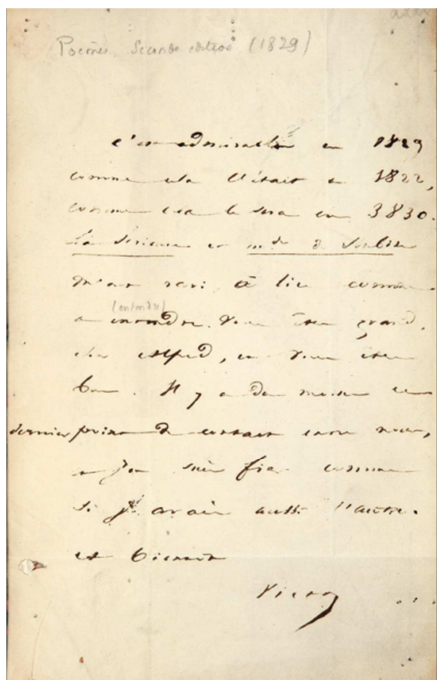 Poèmes. Seconde édition (1829)
c'est admirable en 1829
comme cela l'était en 1822,
comme cela le sera en 3830.
La Sérieuse et Mde de Soubise
m'ont ravi, à lire comme
(entendre)
à entendre. Vous êtes grand,
cher Alfred, et vous êtes
bon. Il y a du moins ce
dernier point de contact entre nous,
et j'en suis fier comme
si j'avais aussi l'autre.
et bientôt
Victor